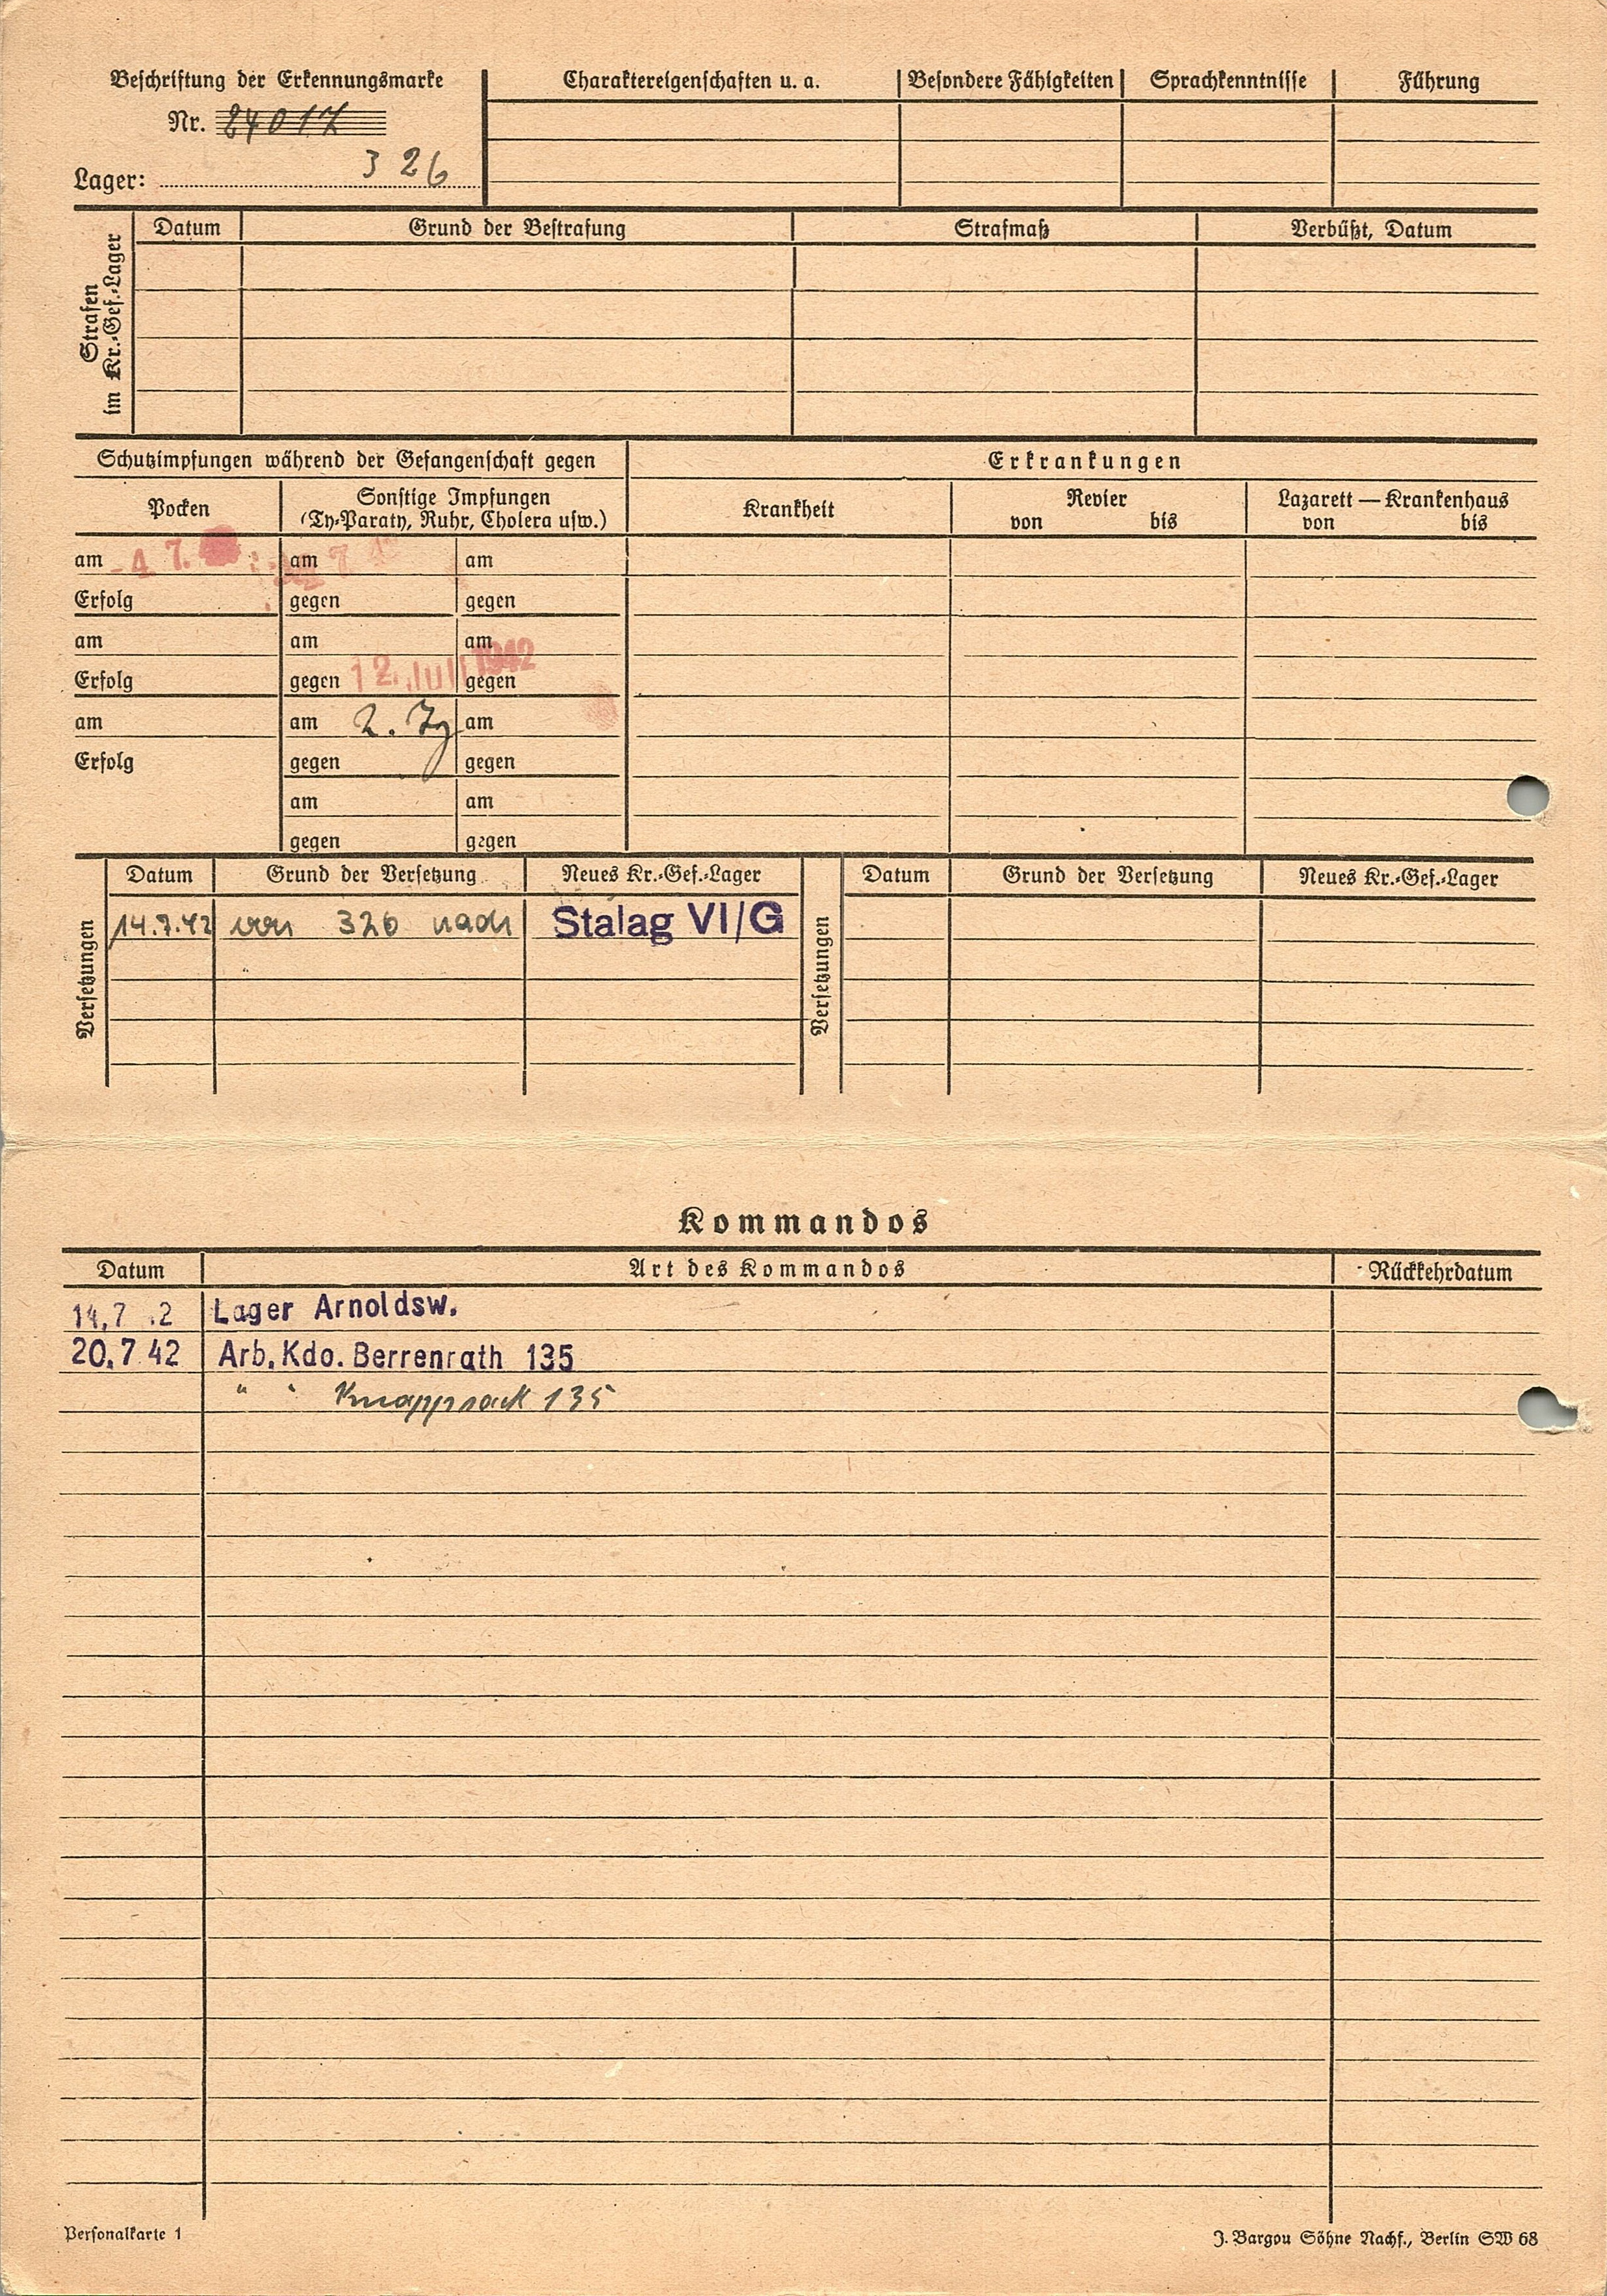 Beschriftung der Erkennungsmarke
Nr. 24017
Lager: 326
Charaktereigenschaften u. a. Besondere Fähigkeiten Sprachkenntnisse Führung
Strafen
im Kr.-Gef.-Lager
Datum Grund der Bestrafung Strafmaß Verbüßt, Datum
Schutzimpfungen während der Gefangenschaft gegen
Erkrankungen
Pocken
Sonstige Impfungen
(Ty-Paraty, Ruhr, Cholera usw.)
Krankheit
Revier
von bis
Lazarett — Krankenhaus
von bis
am -4. 7. am 7. am
Erfolg gegen gegen
am am am
Erfolg gegen 12. Juli 1942 gegen
am am 2. am
Erfolg gegen gegen
am am
gegen gegen
Versetzungen
Datum Grund der Versetzung Neues Kr.-Gef.-Lager
14.7.42 von 326 nach Stalag VI/G
Versetzungen
Datum Grund der Versetzung Neues Kr.-Gef.-Lager
Kommandos
Datum Art des Kommandos Rückkehrdatum
14.7 .2 Lager Arnoldsw.
20.7.42 Arb. Kdo. Berrenrath 135
" " Knappsack 135
Personalkarte 1
J. Bargou Söhne Nachf., Berlin SW 68